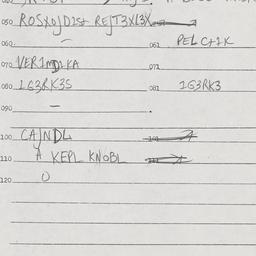 050 ROSXOJD1St REJT3XL3X
060 — 061 PELC+1K
070 VER1MDLKA 071
080 1G3RK3S 081 1G3RK3
090 —
100 CAJNDL 101
110 A KEPL KNOBL 111
120 O